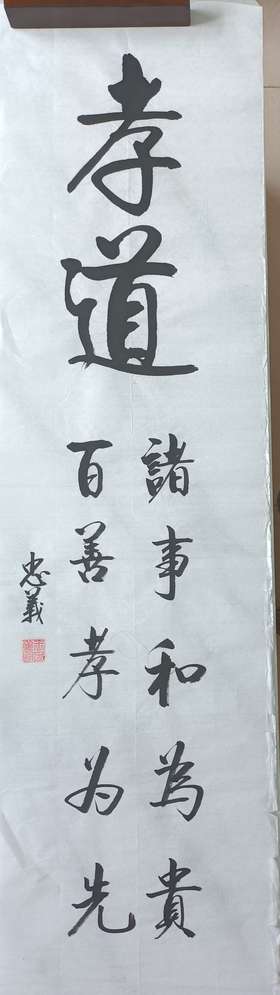 孝道
諸事和為貴
百善孝为先
忠義